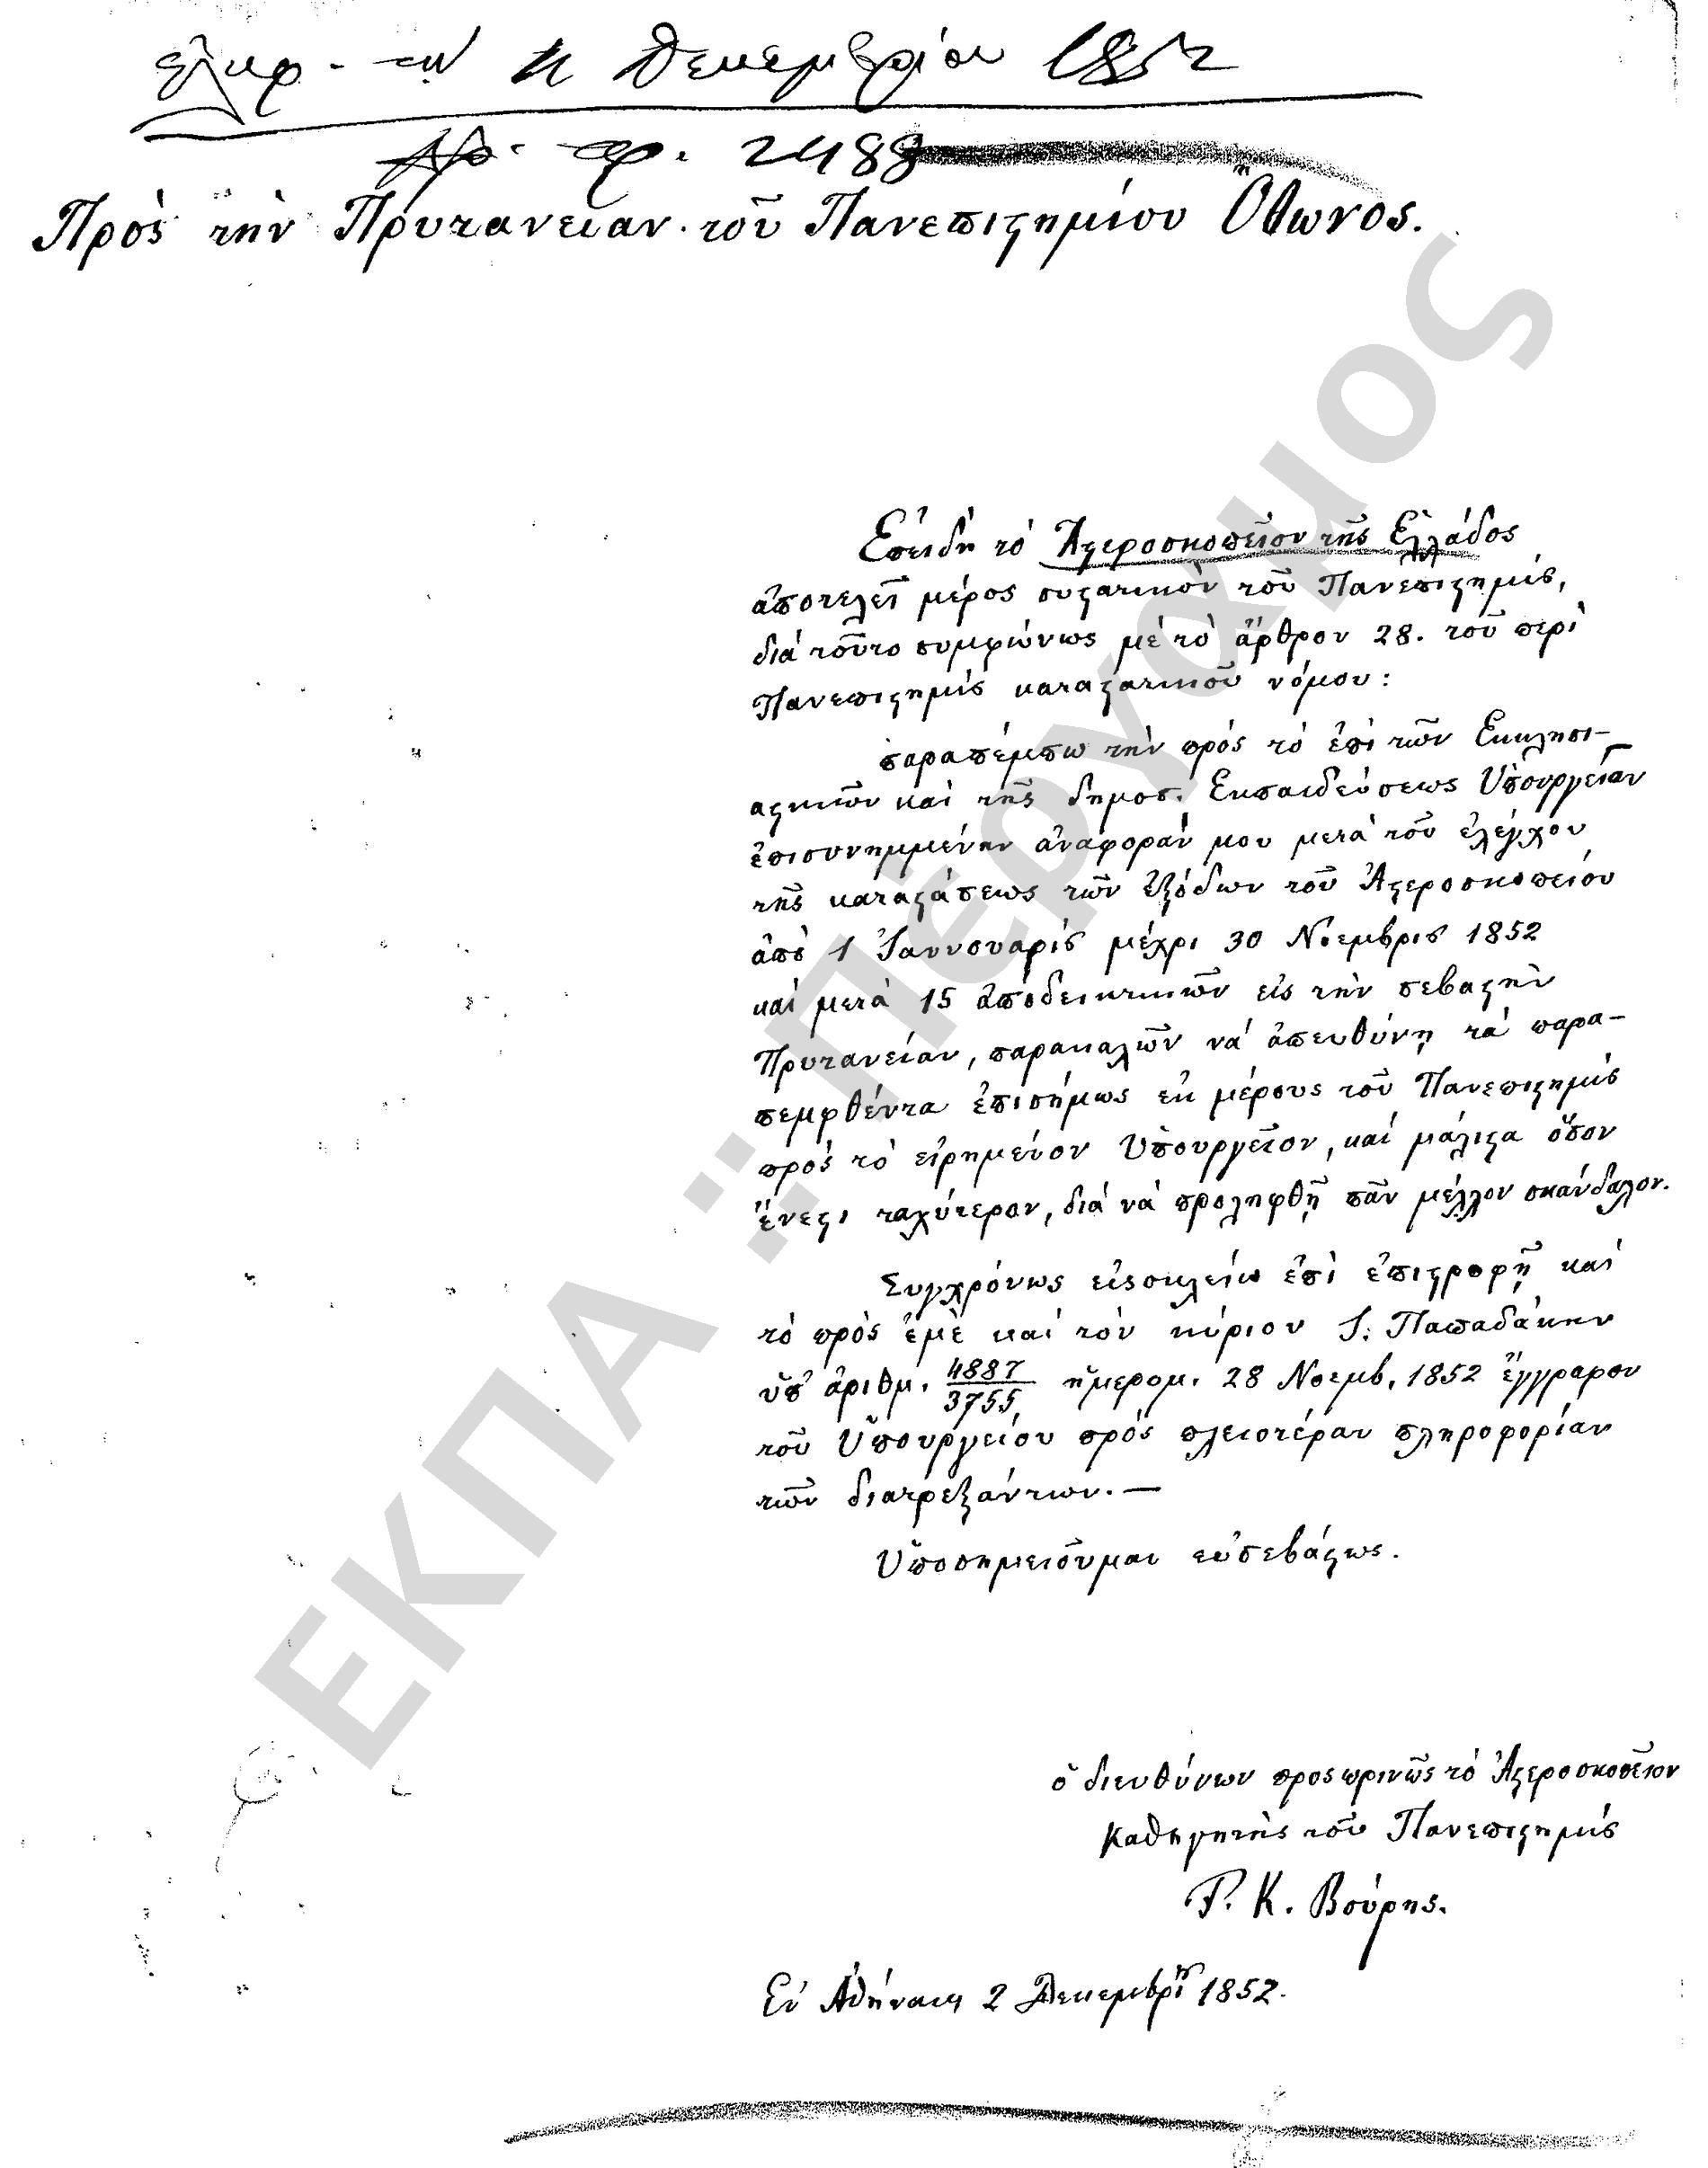 Δεκεμβρίου 1852
Ἀρ. πρ. 2488
Πρὸς τὴν Πρυτανείαν τοῦ Πανεπιϛημίου Ὄθωνος.
Ἐπειδὴ τὸ Ἀϛεροσκοπεῖον τῆς Ἑλλάδος
ἀποτελεῖ μέρος συϛατικὸν τοῦ Πανεπιϛημίȣ,
διὰ τοῦτο συμφώνως μὲ τὸ ἄρθρον 28. τοῦ περὶ
Πανεπιϛημίȣ καταϛατικοῦ νόμου:
παραπέμπω τὴν πρὸς τὸ ἐπὶ τῶν Ἐκκλησι-
αϛικῶν καὶ τῆς δημοσ. Ἐκπαιδεύσεως Ὑπουργεῖον
ἐπισυνημμένην ἀναφοράν μου μετὰ τοῦ ἐλέγχου
τῆς καταϛάσεως τῶν ἐξόδων τοῦ Ἀϛεροσκοπείου
ἀπὸ 1 Ἰαννουαρίȣ μέχρι 30 Νοεμβρίȣ 1852
καὶ μετὰ 15 ἀποδεικτικῶν εἰς τὴν σεβαϛὴν
Πρυτανείαν, παρακαλῶν νὰ ἀπευθύνῃ τὰ παρα-
πεμφθέντα ἐπισήμως ἐκ μέρους τοῦ Πανεπιϛημίȣ
πρὸς τὸ εἰρημένον Ὑπουργεῖον, καὶ μάλιϛα ὅσον
ἔνεϛι ταχύτερον, διὰ νὰ προληφθῇ πᾶν μέλλον σκάνδαλον.
Συγχρόνως εἰςκλείω ἐπὶ ἐπιϛροφῇ καὶ
τὸ πρὸς ἐμὲ καὶ τὸν κύριον Ἰ. Παπαδάκην
ὑπ' ἀριθμ. 4887/3755 ἡμερομ. 28 Νοεμβ. 1852 ἔγγραφον
τοῦ Ὑπουργείου πρὸς πλειοτέραν πληροφορίαν
τῶν διατρεξάντων. —
Ὑποσημειοῦμαι εὐσεβάϛως.
ὁ διευθύνων προςωρινῶς τὸ Ἀϛεροσκοπεῖον
καθηγητὴς τοῦ Πανεπιϛημίȣ
Γ. Κ. Βούρης.
Ἐν Ἀθήναις 2 Δεκεμβρίȣ 1852.
ΕΚΠΑ :: Πέργαμος